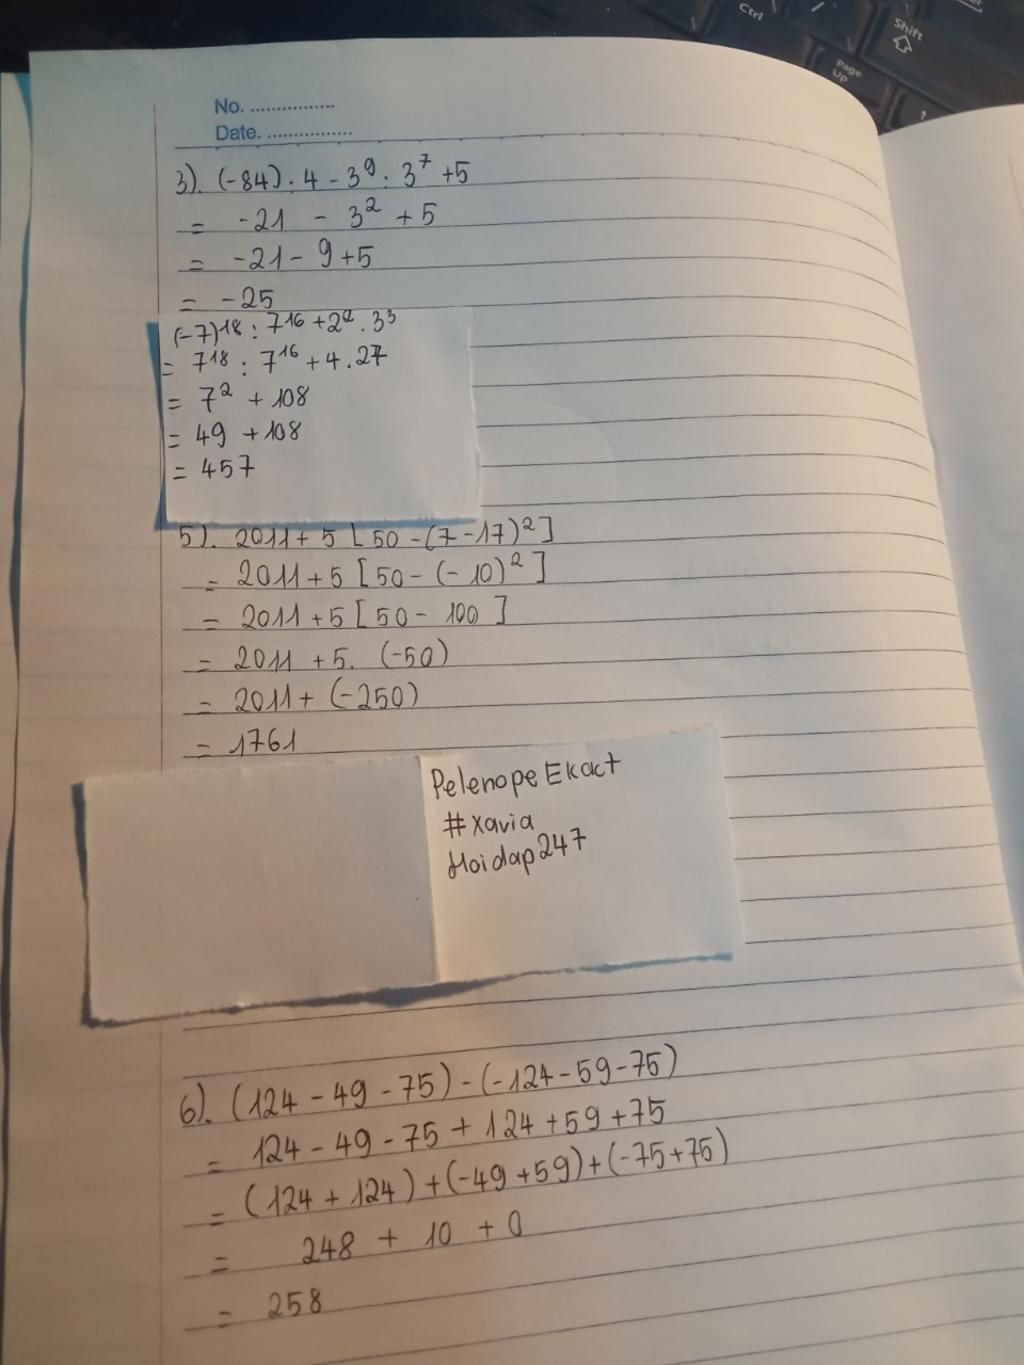 Ctrl
Shift
Page
UP
No. ................
Date. ................
3). (-84) : 4 - 3⁹ : 3⁷ + 5
= -21 - 3² + 5
= -21 - 9 + 5
= -25
(-7)¹⁸ : 7¹⁶ + 2² . 3³
= 7¹⁸ : 7¹⁶ + 4 . 27
= 7² + 108
= 49 + 108
= 457
5). 2011 + 5 [ 50 - (7 - 17)² ]
= 2011 + 5 [ 50 - (- 10)² ]
= 2011 + 5 [ 50 - 100 ]
= 2011 + 5. (-50)
= 2011 + (-250)
= 1761
Pelenope Ekact
#xavia
Hoidap247
6). (124 - 49 - 75) - (-124 - 59 - 75)
= 124 - 49 - 75 + 124 + 59 + 75
= (124 + 124) + (-49 + 59) + (-75 + 75)
= 248 + 10 + 0
= 258